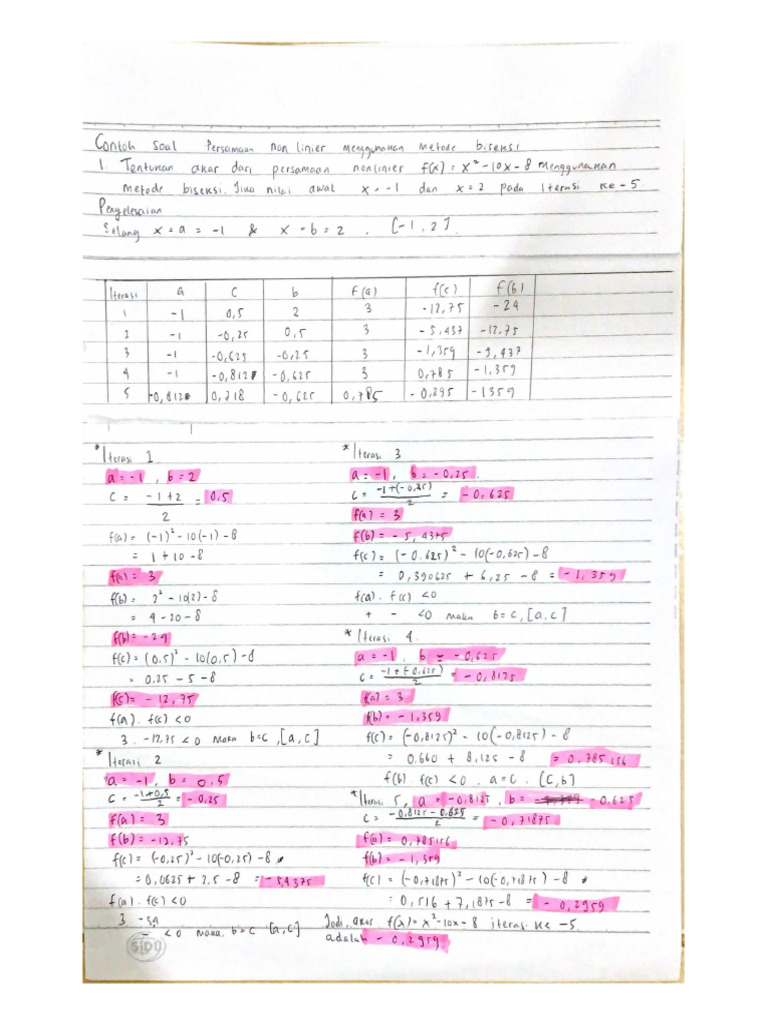 Contoh soal Persamaan non linier menggunakan metode biseksi
1. Tentukan akar dari persamaan nonlinier f(x) = x² - 10x - 8 menggunakan
metode biseksi. Jika nilai awal x = -1 dan x = 2 pada Iterasi ke - 5
Penyelesaian
Selang x = a = -1 & x = b = 2 . [-1, 2].
Iterasi a c b f(a) f(c) f(b)
1 -1 0,5 2 3 -12,75 -24
2 -1 -0,25 0,5 3 -5,437 -12.75
3 -1 -0,625 -0,25 3 -1,359 -5,437
4 -1 -0,812 -0,625 3 0,785 -1,359
5 -0,812 0,718 -0,625 0,785 -0,295 -1359
* Iterasi 1
a = -1 , b = 2
c = -1 + 2 / 2 = 0.5
f(a) = (-1)² - 10(-1) - 8
= 1 + 10 - 8
f(a) = 3
f(b) = 2² - 10(2) - 8
= 4 - 20 - 8
f(b) = -24
f(c) = (0,5)² - 10(0,5) - 8
= 0.25 - 5 - 8
f(c) = -12,75
f(a) . f(c) < 0
3 . -12,75 < 0 maka b=c , [a,c]
* Iterasi 2
a = -1, b = 0.5
c = -1+0,5 / 2 = -0.25
f(a) = 3
f(b) = -12,75
f(c) = (-0,25)² - 10(-0,25) - 8
= 0,0625 + 2,5 - 8 = -5,4375
f(a) . f(c) < 0
3 -5,4
- < 0 maka b=c [a,c]
SIDU
* Iterasi 3
a = -1, b = -0,25.
c = -1+(-0,25) / 2 = -0,625
f(a) = 3
f(b) = -5,4375
f(c) = (-0.625)² - 10(-0,625) - 8
= 0,390625 + 6,25 - 8 = -1,359
f(a) . f(c) < 0
+ - < 0 maka b=c, [a,c]
* Iterasi 4
a = -1 , b = -0,625
c = -1+(-0,625) / 2 = -0,8125
f(a) = 3
f(b) = -1,359
f(c) = (-0,8125)² - 10(-0,8125) - 8
= 0.660 + 8,125 - 8 = 0,785156
f(b) . f(c) < 0 , a = c . [c,b]
* Iterasi 5, a = -0,8125, b = -0.625
c = -0,8125 - 0.625 / 2 = -0,71875
f(a) = 0,785156
f(b) = -1,359
f(c) = (-0,71875)² - 10(-0,71875) - 8
= 0,516 + 7,1875 - 8 = -0,2959
Jadi, akar f(x) = x² - 10x - 8 iterasi ke - 5
adalah -0,2959.